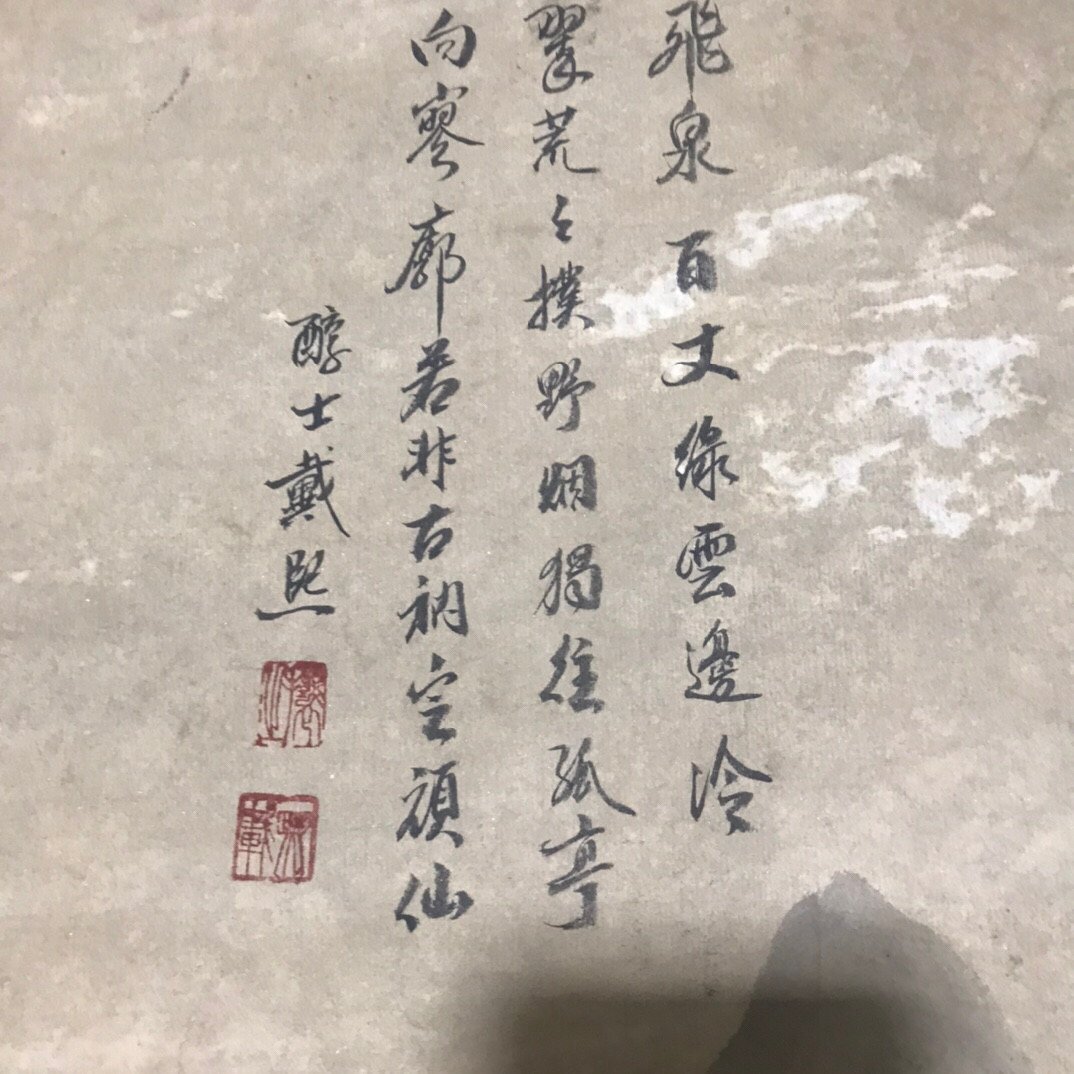 飛泉百丈綠雲邊冷
翠荒々撲野烟獨往孤亭
向寥廓若非古衲定頑仙
醇士戴熙